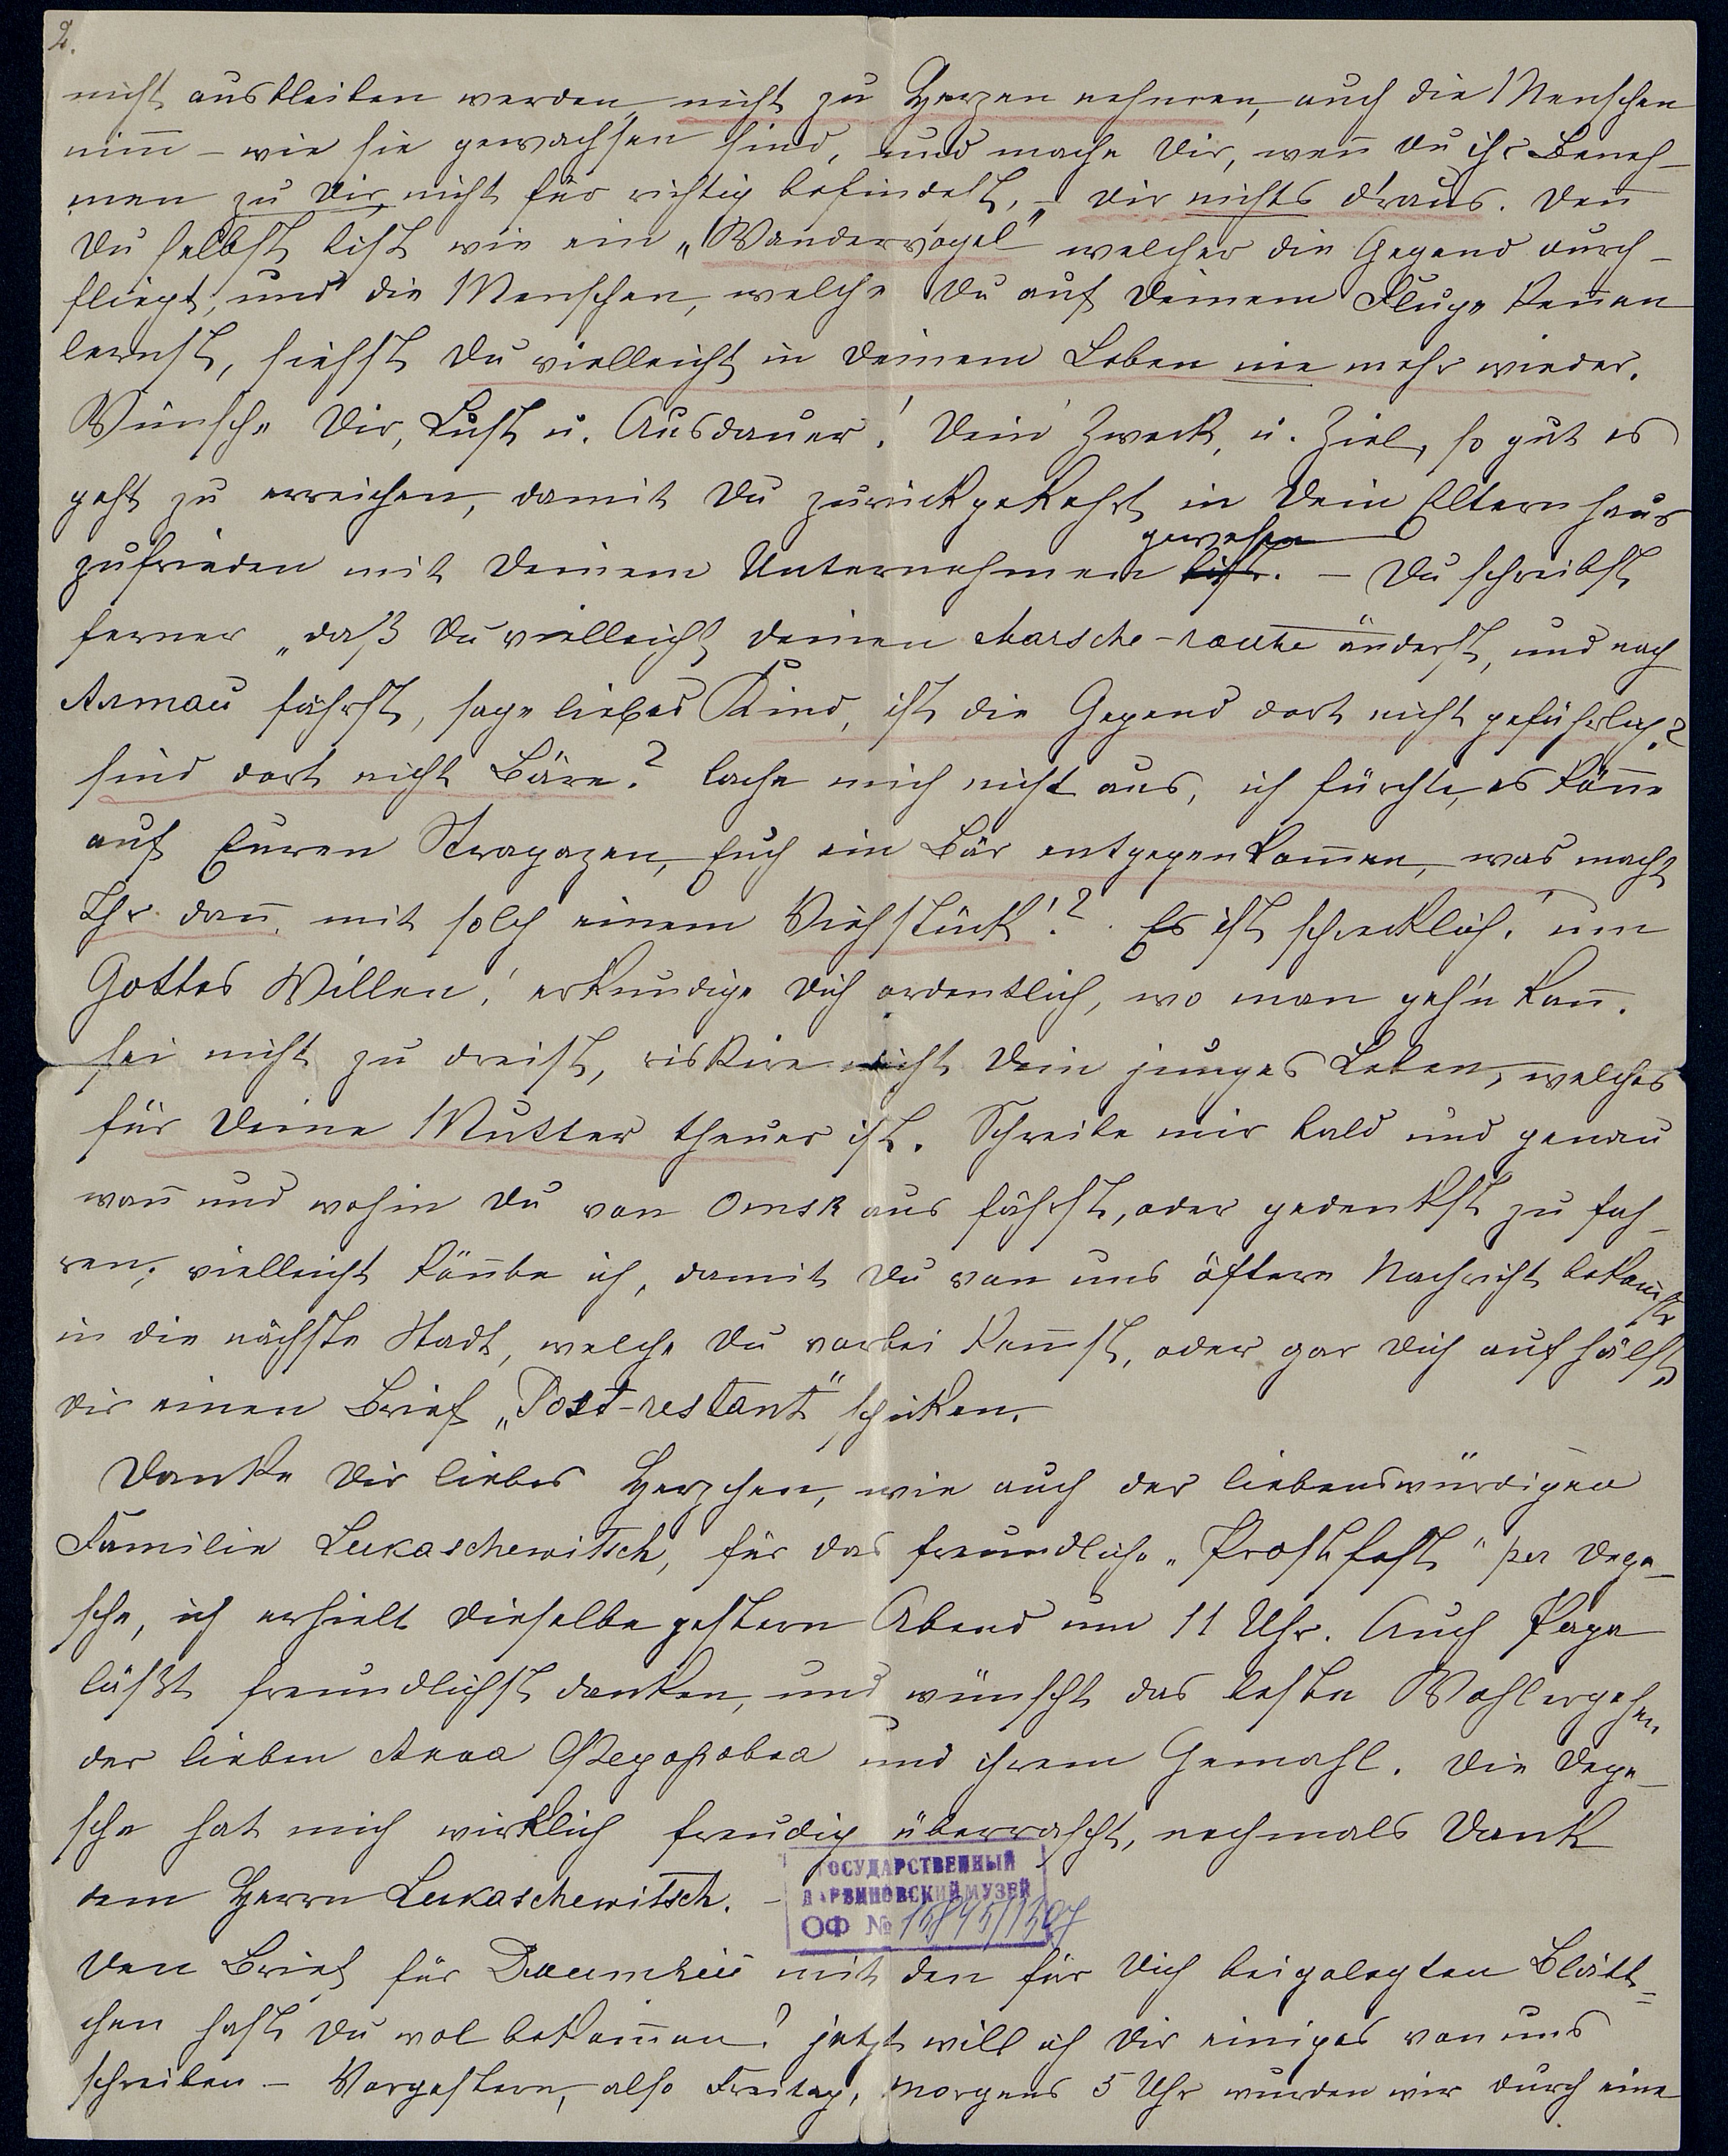 2.
nicht ausbleiben werden, nicht zu Herzen nehmen, auch die Menschen
nim̄ – wie sie gewachsen sind, und mache Dir, wen̄ Du ihr Beneh-
men zu Dir nicht für richtig befindest, – Dir nichts d'raus. Den̄
Du selbst bist wie ein „Wandervogel" welcher die Gegend durch-
fliegt, und die Menschen, welche Du auf Deinem Fluge ken̄en
lernst, siehst Du vielleicht in Deinem Leben nie mehr wieder.
Wünsche Dir, Lust u. Ausdauer! Dein Zweck, u. Ziel, so gut es
geht zu erreichen, damit Du zurückgekehrt in Dein Elternhaus
zufrieden mit Deinem Unternehmen gewesen bist. – Du schreibst
ferner „daß Du vielleicht Deinen Marsche-route änderst, und nach
fährst, sage liebes Kind, ist die Gegend dort nicht gefährlich?
sind dort nicht Bäre? lache mich nicht aus, ich fürchte, es kön̄e
auf Euren Strapazen, Euch ein Bär entgegenkom̄en, was macht
Ihr dan̄ mit solch einem Viehstück!? Es ist schrecklich, um
Gottes Willen! erkundige Dich ordentlich, wo man geh'n kan̄.
sei nicht zu dreist, riskire nicht Dein junges Leben, welches
für Deine Mutter theuer ist. Schreibe mir bald und genau
wan̄ und wohin Du von Omsk aus fährst, oder gedenkst zu fah-
ren, vielleicht kön̄te ich, damit Du von uns öftere Nachricht bekom̄st
in die nächste Stadt, welche Du vorbei kom̄st, oder gar Dich aufhälst,
dir einen Brief „Post-restant" schicken.
Danke Dir liebes Herzchen, wie auch der liebenswürdigen
Familie Lukaschewitsch, für das freundliche „Prosit fest" per Depe-
sche, ich erhielt dieselbe gestern Abend um 11 Uhr. Auch Papa
läßt freundlichst danken, und wünscht das beste Wohlergehen
der lieben Анна Федоровна und ihrem Gemahl. Die Depe-
sche hat mich wirklich freudig überrascht, nochmals Dank
dem Herrn Lukaschewitsch. –
ГОСУДАРСТВЕННЫЙ
ДАРВИНОВСКИЙ МУЗЕЙ
ОФ №
Den Brief für mit den für Dich beigelegten Blätt=
chen hast Du wol bekom̄en? jetzt will ich Dir einiges von uns
schreiben – Vorgestern, also Freitag, Morgens 5 Uhr wurden wir durch eine